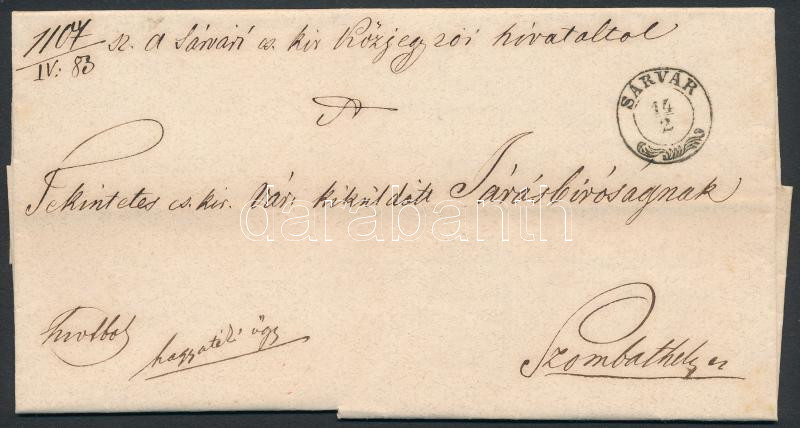 1107 sz. a Sárvári cs. kir Közjegyzői hivataltol
IV: 83
SÁRVÁR
14
2
A
Tekintetes cs. kir. Vár: kiküldött Járásbíróságnak
darabanth
hagyatéki ügy
Szombathelyen